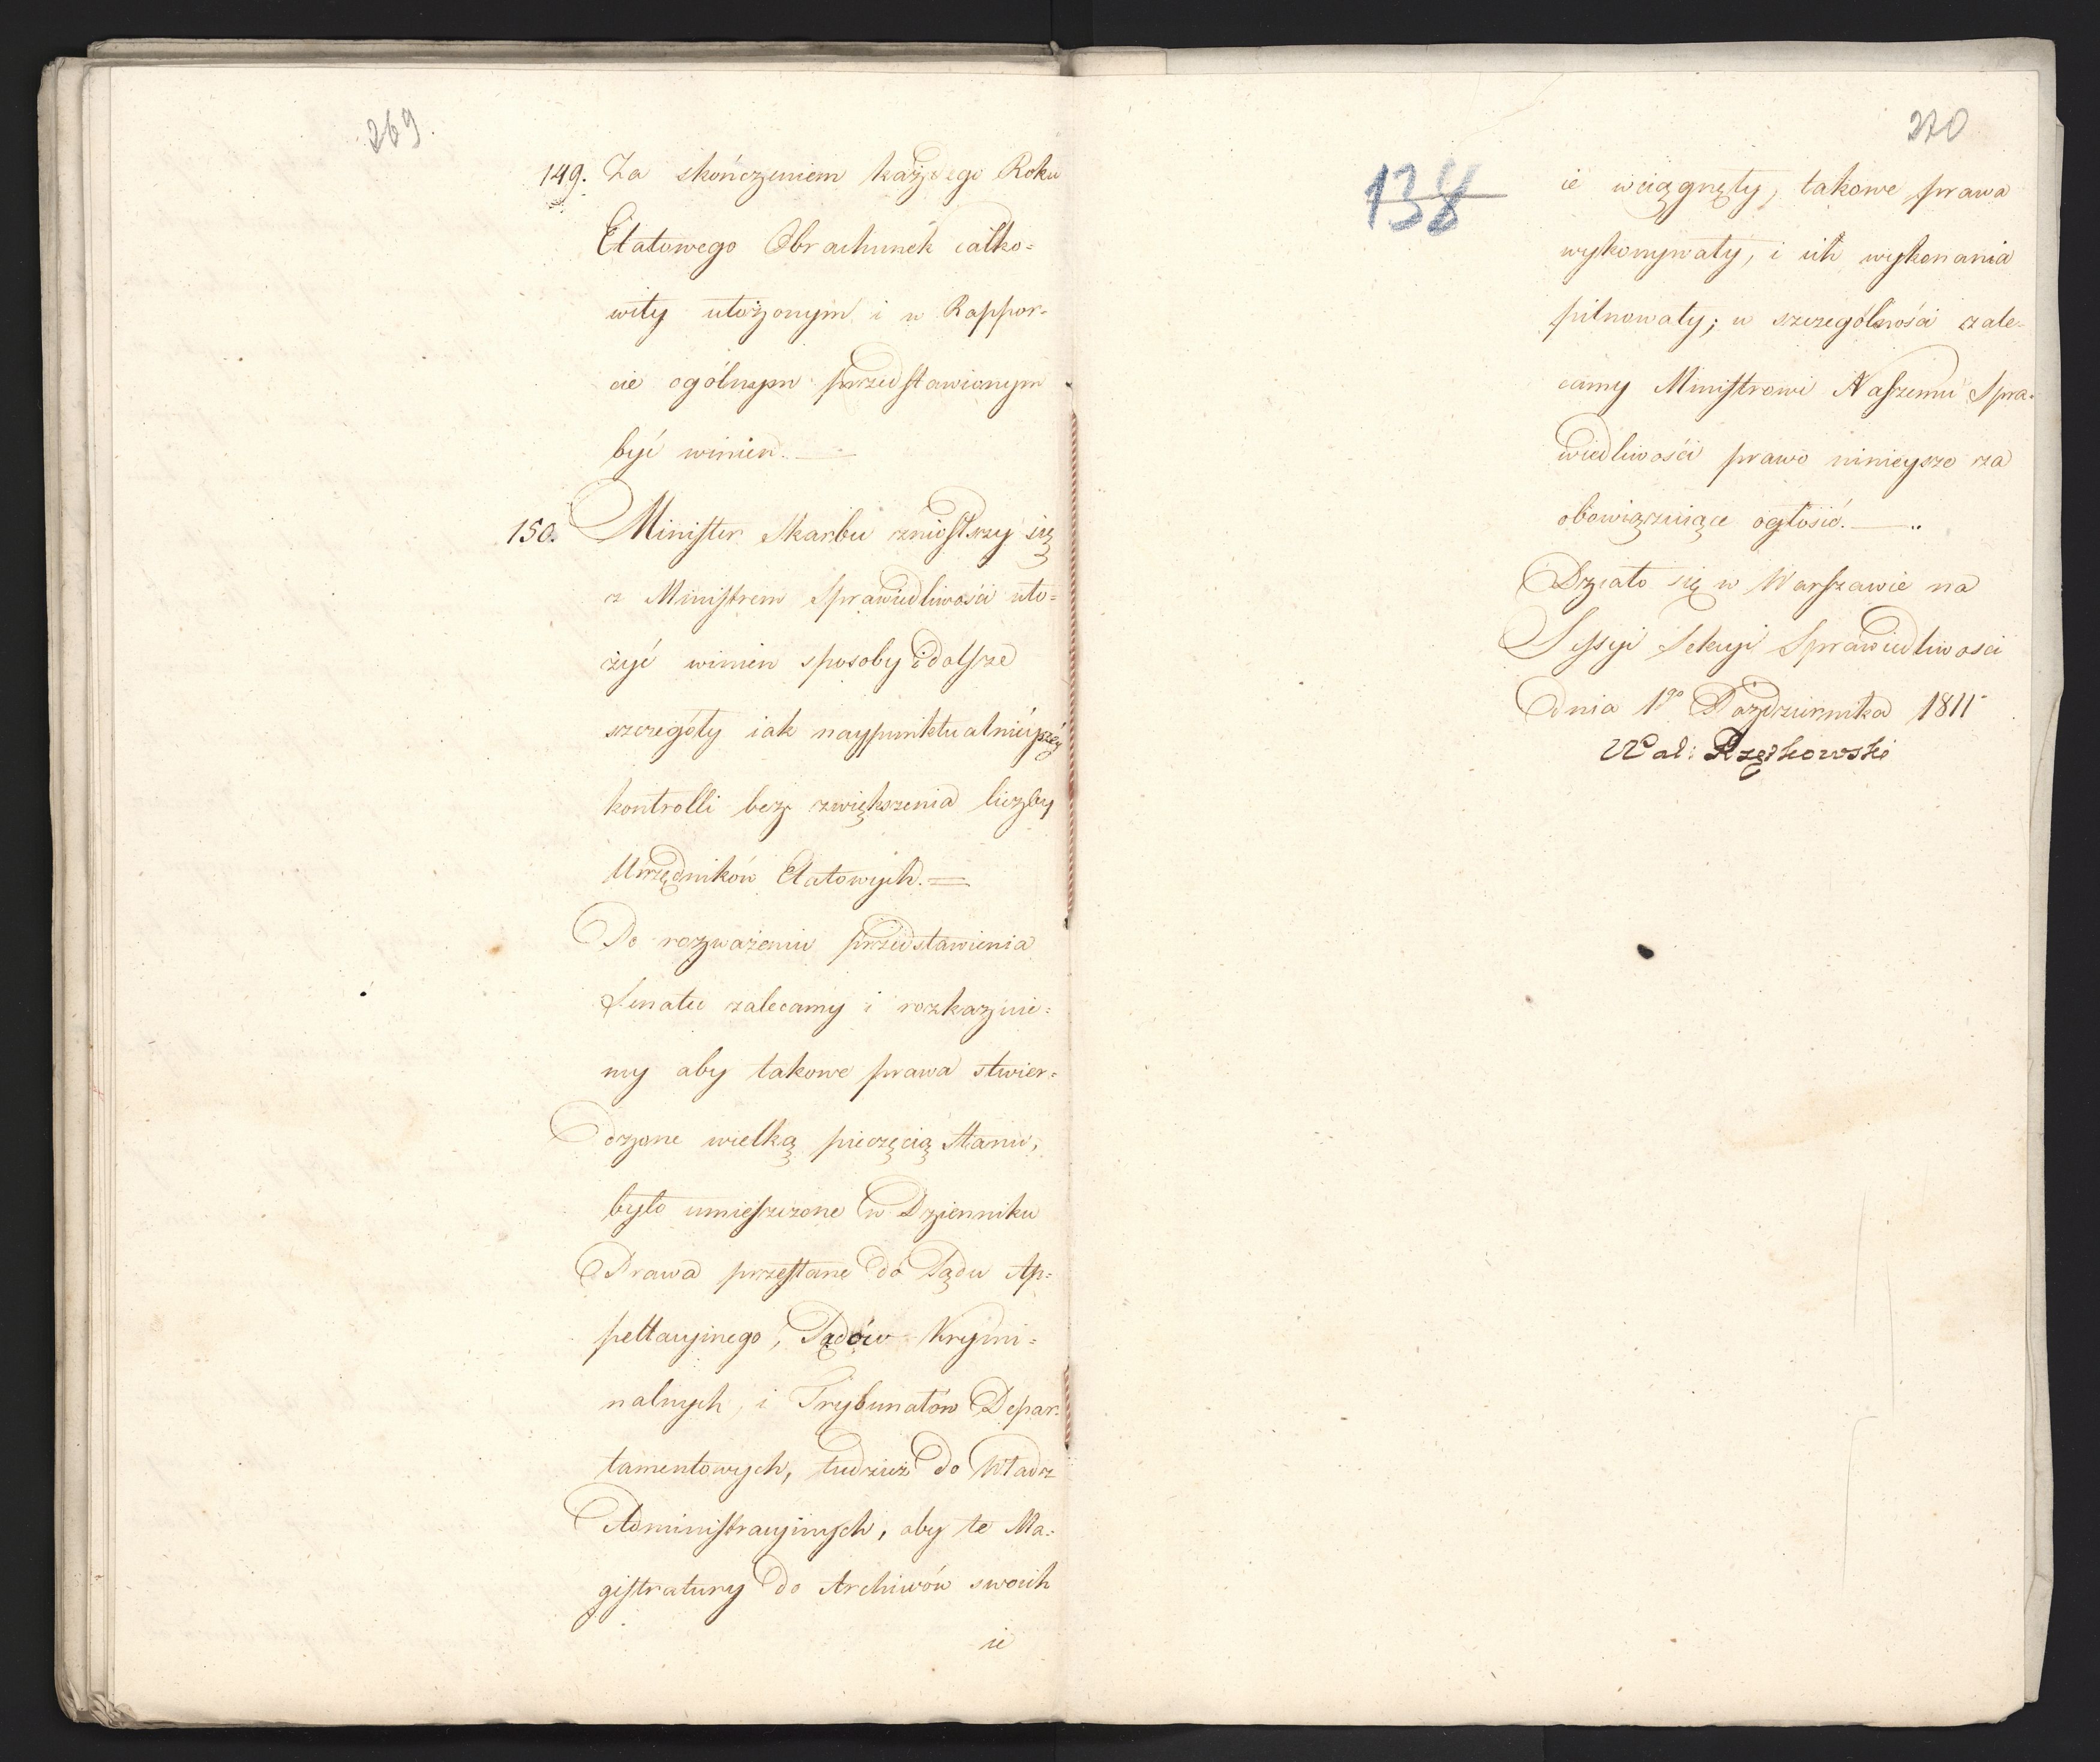 269.
149. Za skończeniem każdego Roku
Etatowego Obrachunek całko=
wity ułożonym i w Rappor=
cie ogólnym przedstawionym
być winien.
150. Minister Skarbu zniosłszy się
z Ministrem Sprawiedliwości uło=
żyć winien sposoby i dalsze
szczegóły iak naypunktualnieyszey
kontrolli bez zwiększenia liczby
Urzędników Etatowych.
Po rozważeniu przedstawienia
Senatu zalecamy i rozkazuie=
my aby takowe prawa stwier=
dzone wielką pieczęcią Stanu,
było umieszczone w Dzienniku
Prawa przesłane do Sądu Ap=
pellacyinego, Sądów Krymi=
nalnych, i Trybunałów Depar=
tamentowych, tudzież do Władz
Administracyinych, aby te Ma=
gistratury do Archiwów swoich
ie
270
138
ie wciągnęły, takowe prawa
wykonywały, i ich wykonania
pilnowały; w szczególności zale=
camy Ministrowi Naszemu Spra=
wiedliwości prawo ninieysze za
obowiązuiące ogłosić.
Działo się w Warszawie na
Sessyi Sekcyi Sprawiedliwości
dnia 1go Października 1811
Wal: Rzętkowski